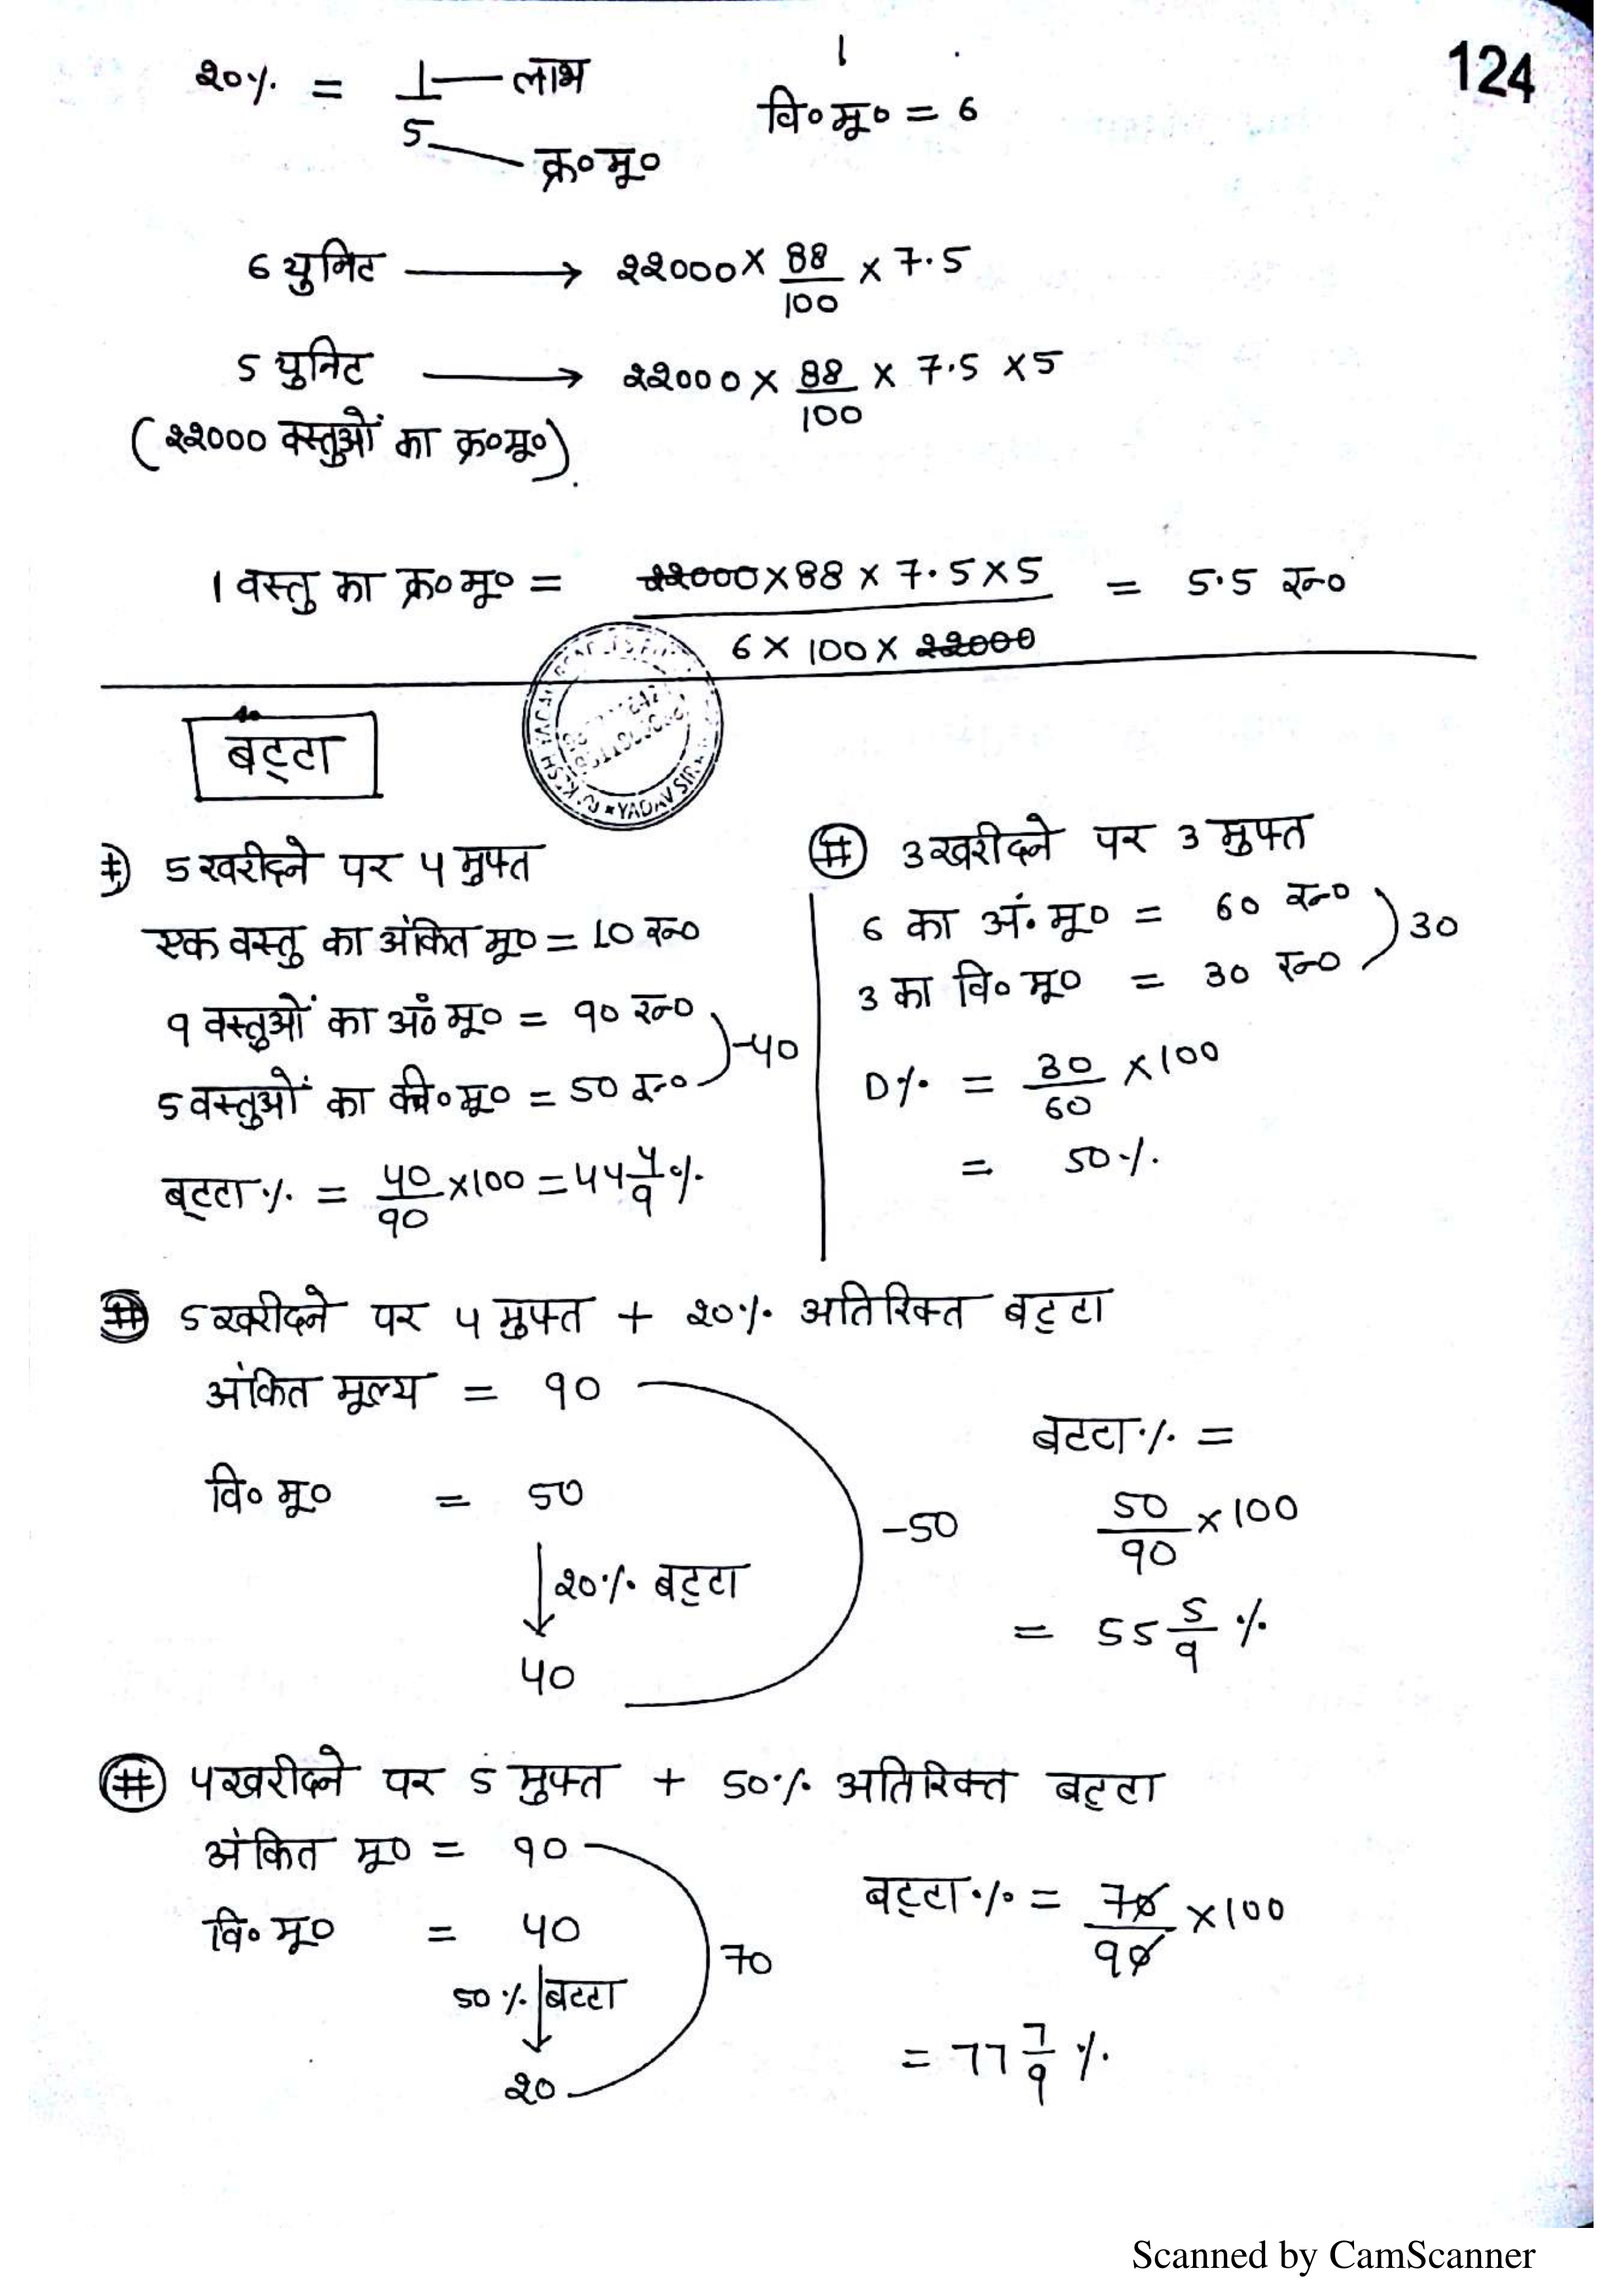 124
20% = 1/5 — लाभ
क्र० मू०
वि० मू० = 6
6 युनिट → 22000 × 88/100 × 7.5
5 युनिट → 22000 × 88/100 × 7.5 × 5
(22000 वस्तुओं का क्र० मू०)
1 वस्तु का क्र० मू० = 22000 × 88 × 7.5 × 5 / 6 × 100 × 22000 = 5.5 रु०
बट्टा
# 5 खरीदने पर 4 मुफ्त
एक वस्तु का अंकित मू० = 10 रु०
9 वस्तुओं का अं० मू० = 90 रु०
5 वस्तुओं का वि० मू० = 50 रु०
-40
बट्टा % = 40/90 × 100 = 44 4/9 %
# 3 खरीदने पर 3 मुफ्त
6 का अं. मू० = 60 रु०
3 का वि० मू० = 30 रु०
30
D% = 30/60 × 100
= 50%
# 5 खरीदने पर 4 मुफ्त + 20% अतिरिक्त बट्टा
अंकित मूल्य = 90
वि० मू० = 50
20% बट्टा
40
-50
बटटा % =
50/90 × 100
= 55 5/9 %
# 4 खरीदने पर 5 मुफ्त + 50% अतिरिक्त बट्टा
अंकित मू० = 90
वि० मू० = 40
50% बटटा
20
70
बट्टा % = 70/90 × 100
= 77 7/9 %
Scanned by CamScanner